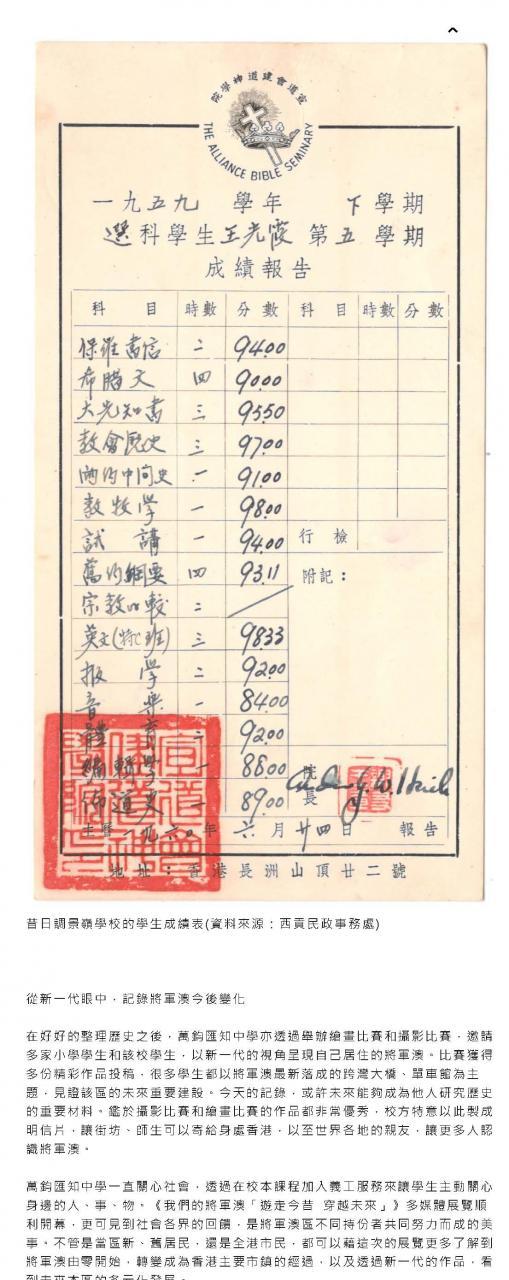 ^
宣道會建道神學院
THE ALLIANCE BIBLE SEMINARY
一九五九 學年 下學期
選科學生王光霞 第五學期
成績報告
科目 時數 分數 科目 時數 分數
保羅書信 二 94.00
希腊文 四 90.00
大先知書 三 95.50
教會歷史 三 97.00
兩約中间史 一 91.00
教牧學 一 98.00
試講 一 94.00 行檢
舊約綱要 四 93.11 附記：
宗教比較 二
英文(特班) 三 98.33
报學 二 92.00
音樂 一 84.00
體育 二 92.00
編輯學 一 88.00 院長
佈道史 一 89.00
主曆一九六〇年 六月廿四日 報告
地址：香港長洲山頂廿二號
昔日調景嶺學校的學生成績表(資料來源：西貢民政事務處)
從新一代眼中，記錄將軍澳今後變化
在好好的整理歷史之後，萬鈞匯知中學亦透過舉辦繪畫比賽和攝影比賽，邀請
多家小學學生和該校學生，以新一代的視角呈現自己居住的將軍澳。比賽獲得
多份精彩作品投稿，很多學生都以將軍澳最新落成的跨灣大橋、單車館為主
題，見證該區的未來重要建設。今天的記錄，或許未來能夠成為他人研究歷史
的重要材料。鑑於攝影比賽和繪畫比賽的作品都非常優秀，校方特意以此製成
明信片，讓街坊、師生可以寄給身處香港，以至世界各地的親友，讓更多人認
識將軍澳。
萬鈞匯知中學一直關心社會，透過在校本課程加入義工服務來讓學生主動關心
身邊的人、事、物。《我們的將軍澳「遊走今昔 穿越未來」》多媒體展覽順
利開幕，更可見到社會各界的回饋，是將軍澳區不同持份者共同努力而成的美
事。不管是當區新、舊居民，還是全港市民，都可以藉這次的展覽更多了解到
將軍澳由零開始，轉變成為香港主要市鎮的經過，以及透過新一代的作品，看
到未來本區的多元化發展。